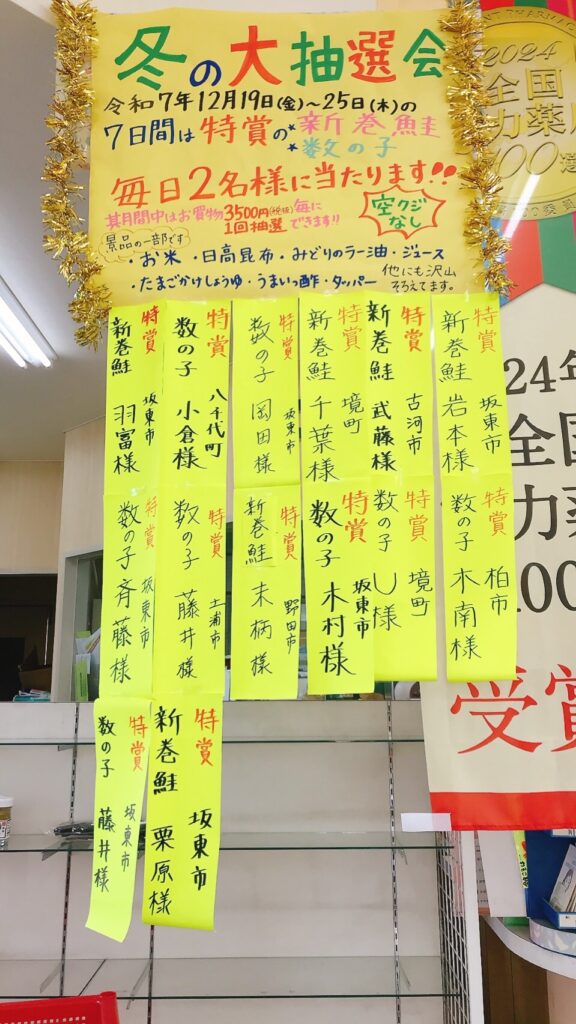 冬の大抽選会
令和7年12月19日(金)~25日(木)の
7日間は特賞の*新巻鮭
*数の子
毎日2名様に当たります!!
其期間中はお買物3500円(税抜)毎に
1回抽選できます!!
空クジ
なし
景品の一部です
・お米・日高昆布・みどりのラー油・ジュース
・たまごかけしょうゆ・うまいっ酢・タッパー
他にも沢山
そろえてます。
特賞
新巻鮭
坂東市
岩本様
特賞
新巻鮭
古河市
武藤様
特賞
新巻鮭
境町
千葉様
特賞
数の子
坂東市
岡田様
特賞
数の子
八千代町
小倉様
特賞
新巻鮭
坂東市
羽富様
特賞
数の子
柏市
木南様
特賞
数の子
境町
し様
特賞
数の子
坂東市
木村様
特賞
新巻鮭
野田市
末柄様
特賞
数の子
土浦市
藤井様
特賞
数の子
坂東市
斉藤様
特賞
新巻鮭
坂東市
栗原様
特賞
数の子
坂東市
藤井様
2024
全国
力薬局
00選
24年
全国
力薬
100
受賞